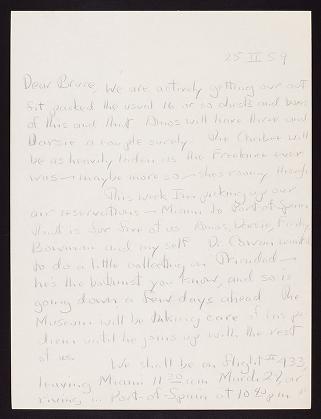 25 III 59
Dear Bruce, We are actively getting our out
fit packed the usual 16 or so chests and boxes
of this and that Amos will have three and
Darsie a couple surely The Caribee will
be as heavily laden as the Freelance ever
was — maybe more so — she's roomy though
This week I'm picking up our
air reservations — Miami to Port-of-Spain
that is for five of us Amos, Darsie,
Bowman and my self D. Cowan wants
to do a little collecting on Trinidad —
he's the botanist you know, and so is
going down a few days ahead The
Museum will be taking care of his per
diem until he joins up with the rest
of us. We shall be on flight # 433,
leaving Miami 11 20 a.m. March 27, ar
riving in Port-of-Spain at 10 20 p.m.